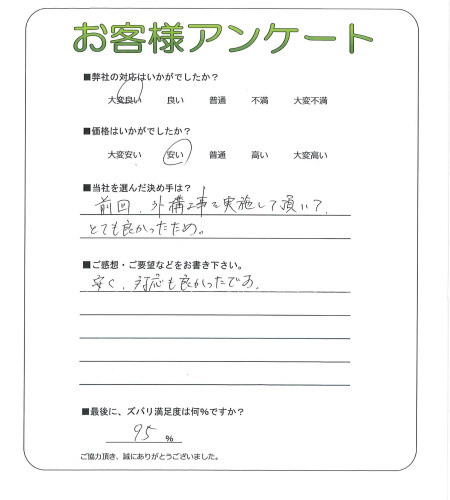 お客様アンケート
■弊社の対応はいかがでしたか？
大変良い 良い 普通 不満 大変不満
■価格はいかがでしたか？
大変安い 安い 普通 高い 大変高い
■当社を選んだ決め手は？
前回、外構工事を実施して頂いて、
とても良かったため。
■ご感想・ご要望などをお書き下さい。
安く、対応も良かったです。
■最後に、ズバリ満足度は何%ですか？
95 %
ご協力頂き、誠にありがとうございました。